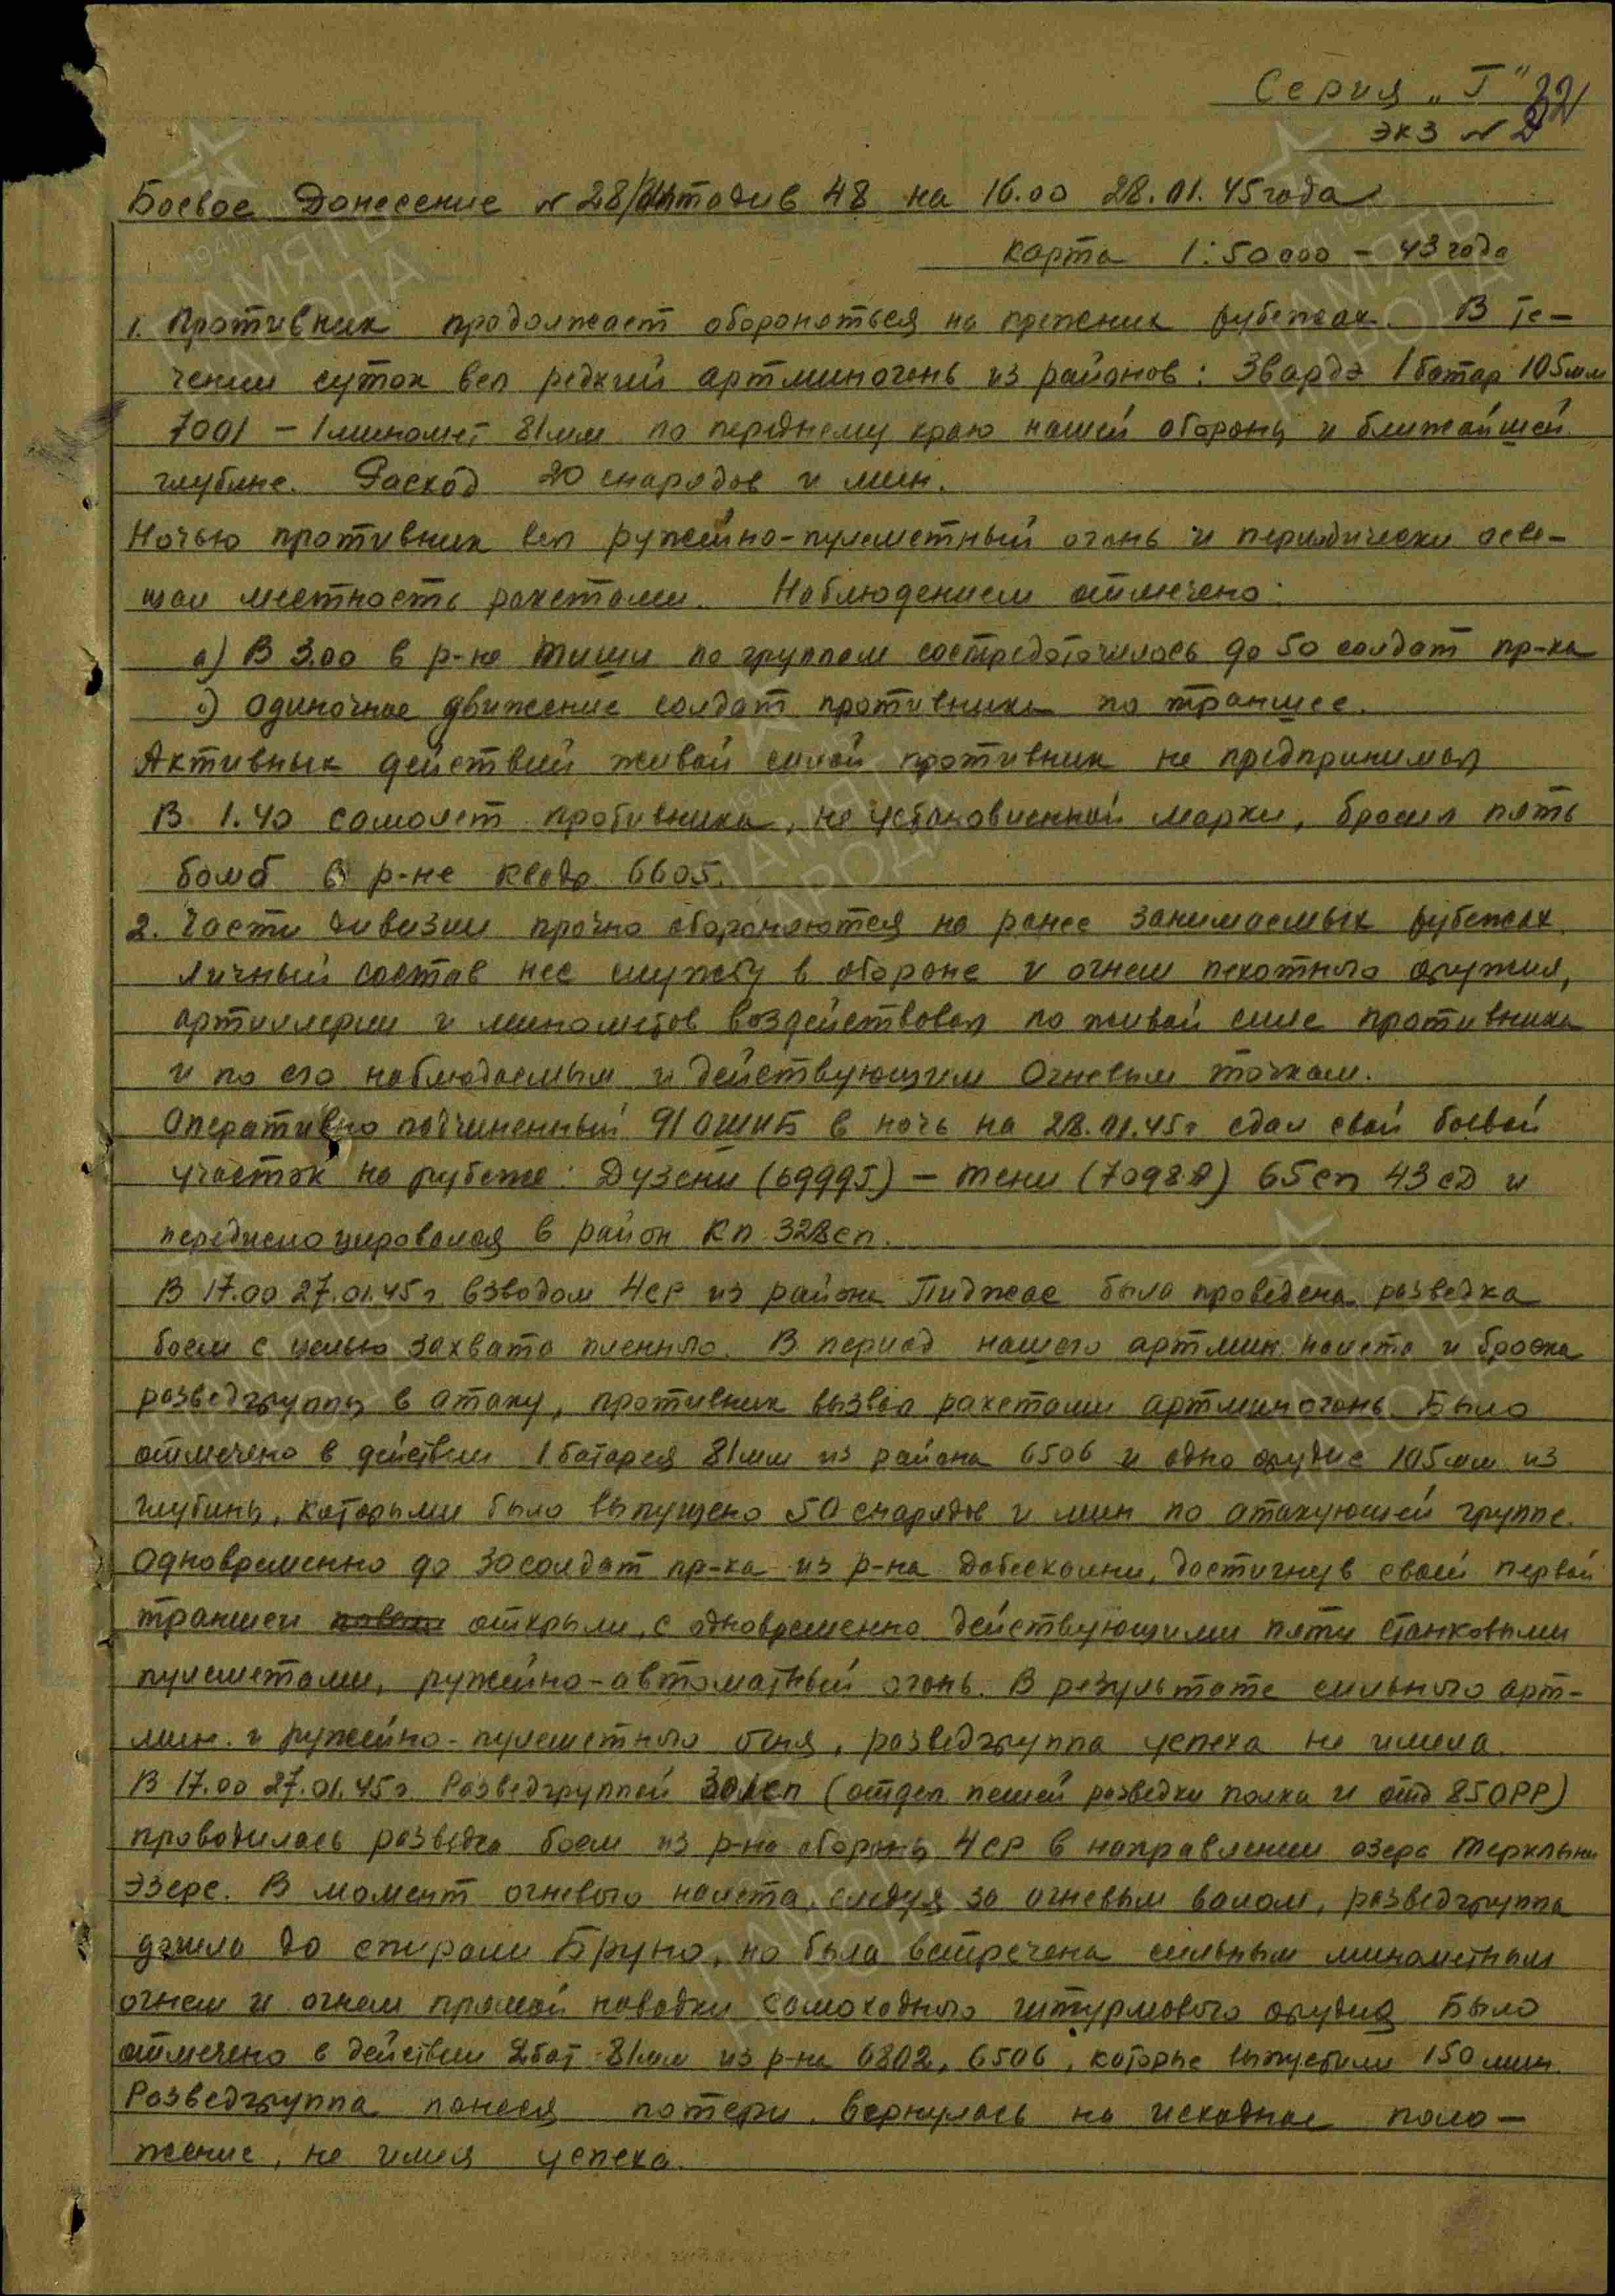 Серия „Г"
32
экз № 2
Боевое Донесение № 28/ штадив 48 на 16.00 28.01.45 года
карта 1:50000 – 43 года
1. Противник продолжает обороняться на прежних рубежах. В те-
чении суток вел редкий артминогонь из районов: Звардэ 1 батар 105мм
7001 – 1 миномет 81мм по переднему краю нашей обороны и ближайшей
глубине. Расход 20 снарядов и мин.
Ночью противник вел ружейно-пулеметный огонь и периодически осве-
щал местность ракетами. Наблюдением отмечено:
а) В 3.00 в р-не Тиши по группам сосредоточилось до 50 солдат пр-ка
б) одиночное движение солдат противника по траншее.
Активных действий живой силой противник не предпринимал
В 1.40 самолет противника, не установленной марки, бросил пять
бомб в р-не квадр. 6605.
2. Части дивизии прочно обороняются на ранее занимаемых рубежах.
Личный состав нес службу в обороне и огнем пехотного оружия,
артиллерии и минометов воздействовал по живой силе противника
и по его наблюдаемым и действующим огневым точкам.
Оперативно подчиненный 91 ОШИБ в ночь на 28.01.45г сдал свой боевой
участок на рубеже: Дузени (69995) – Тени (7098А) 65сп 43сд и
передислоцировался в район КП 328сп.
В 17.00 27.01.45г взводом 4ср из района Пиджас была проведена разведка
боем с целью захвата пленного. В период нашего артмин. налета и броска
разведгруппы в атаку, противник вызвал ракетами артминогонь. Было
отмечено в действии 1 батарея 81мм из района 6506 и одно орудие 105мм из
глубины, которыми было выпущено 50 снарядов и мин по атакующей группе.
Одновременно до 30 солдат пр-ка из р-на Добескални, достигнув своей первой
траншеи открыли, с одновременно действующими пяти станковыми
пулеметами, ружейно-автоматный огонь. В результате сильного арт-
мин. и ружейно-пулеметного огня, разведгруппа успеха не имела.
В 17.00 27.01.45г. Разведгруппой 301сп (отдел. пешей разведки полка и отд 85ОРР)
проводилась разведка боем из р-на обороны 4ср в направлении озера Терклыни
эзере. В момент огневого налета, следуя за огневым валом, разведгруппа
дошла до спирали Бруно, но была встречена сильным минометным
огнем и огнем прямой наводки самоходного штурмового орудия. Было
отмечено в действии 2 бат 81мм из р-на 6802, 6506, которые выпустили 150 мин.
Разведгруппа понеся потери, вернулась на исходное поло-
жение, не имея успеха.